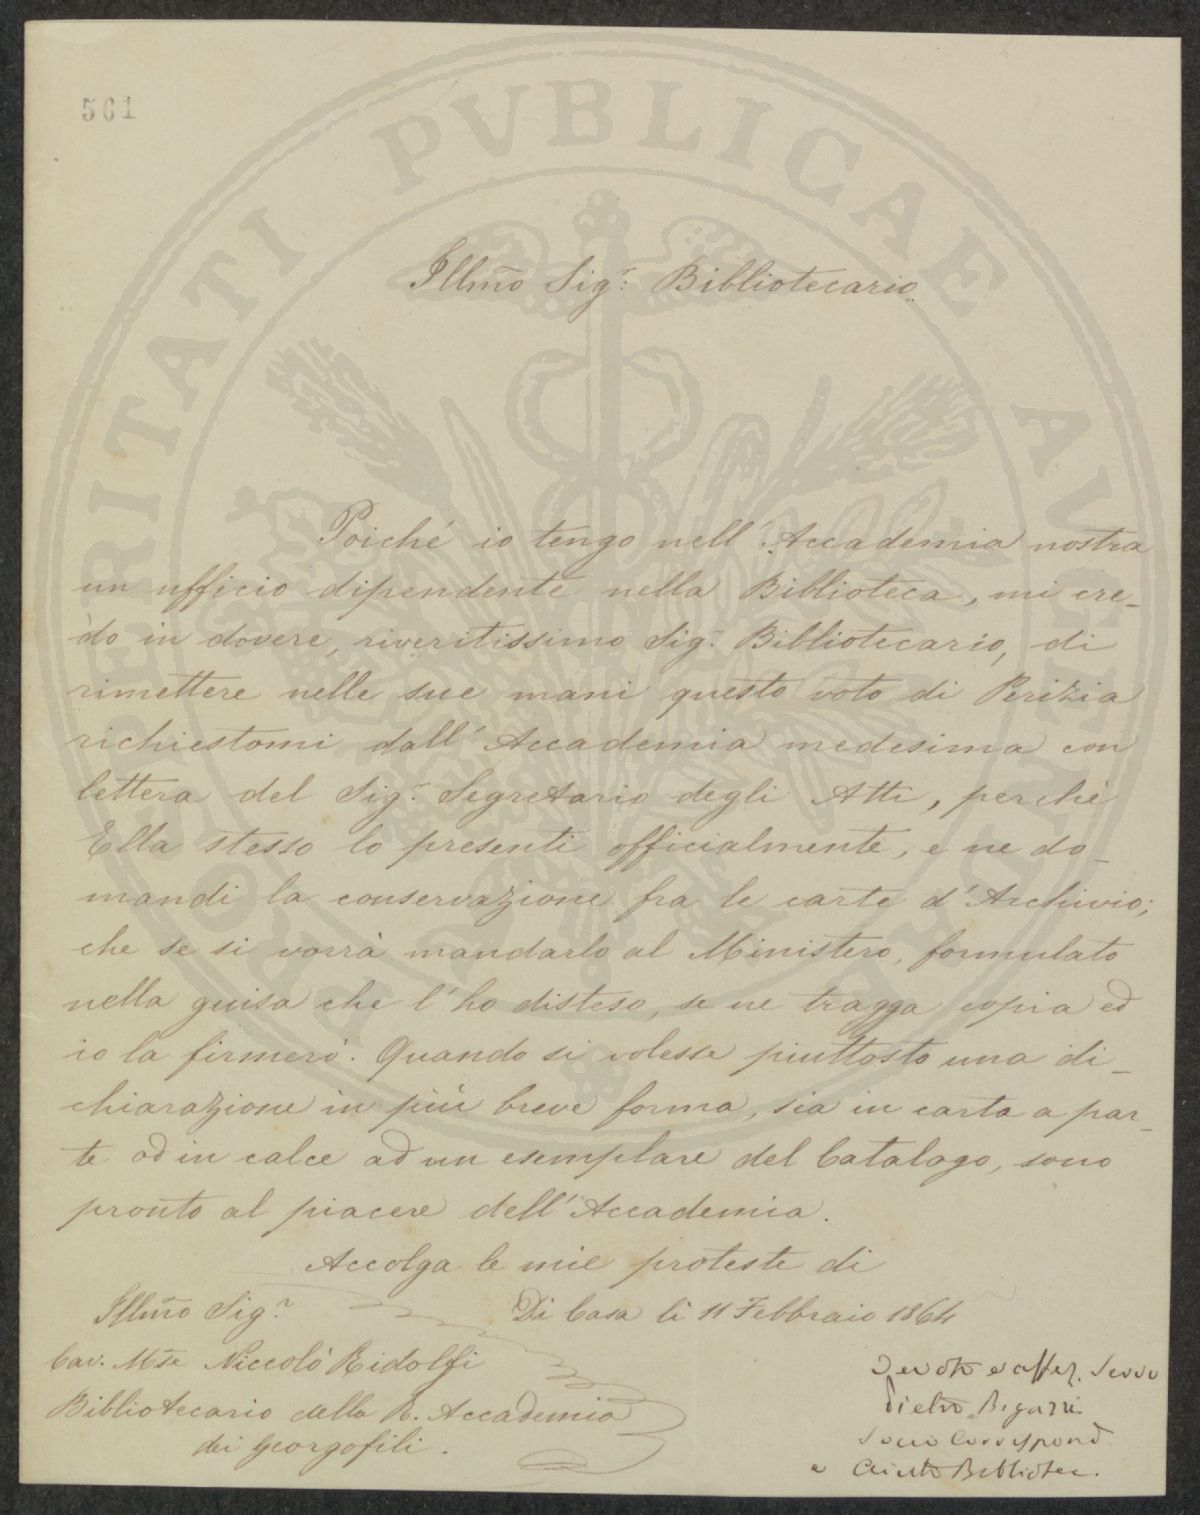 561
PROSPERITATI PVBLICAE AVGENDAE
Illm̃o Sig.r Bibliotecario
Poiché io tengo nell'Accademia nostra
un ufficio dipendente nella Biblioteca, mi cre-
do in dovere, riveritissimo Sig.r Bibliotecario, di
rimettere nelle sue mani questo voto di Perizia
richiestomi dall'Accademia medesima con
lettera del Sig.r Segretario degli Atti, perchè
Ella stesso lo presenti officialmente, e ne do-
mandi la conservazione fra le carte d'Archivio;
che se si vorrà mandarlo al Ministero, formulato
nella guisa che l'ho disteso, se ne tragga copia ed
io la firmerò. Quando si volesse piuttosto una di-
chiarazione in più breve forma, sia in carta a par-
te od in calce ad un esemplare del Catalogo, sono
pronto al piacere dell'Accademia.
Accolga le mie proteste di
Illm̃o Sig.r
Di Casa li 11 Febbraio 1864
Cav. Mse Niccolò Ridolfi
Bibliotecario della R. Accademia
dei Georgofili.
Devoto e affez. Servo
Pietro Bigazzi
Socio Corrispond
e Aiuto Bibliotec.